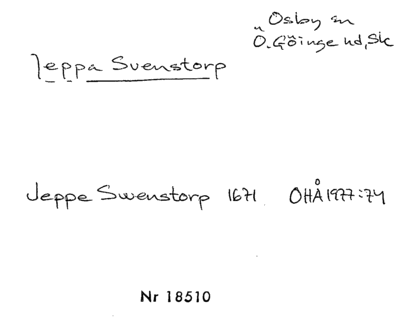 Osby sn
Ö. Göinge hd, Sk
Jeppa Svenstorp
Jeppe Swenstorp 1671 OHÅ 1977:74
Nr 18510